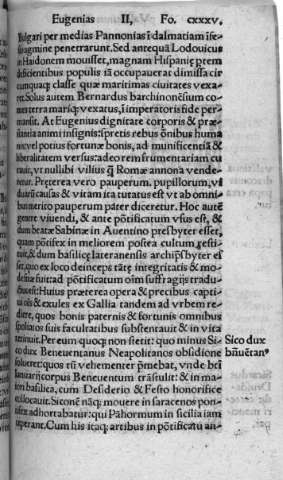 Eugenias II, Fo. cxxxv.
Vulgari per medias Pannonias ĩ dalmatiam ĩfe-
sti agmine penetrarunt. Sed antequã Lodouicus
in Haidonem mouisset, magnam Hispanię prem
deficientibus populis iã occupauerat dimissa cir
cumquaq; classe quæ maritimas ciuitates vexa-
ret. Solus autem Bernardus barchinonẽsium co-
mes terra mariq; vexatus, ĩ imperatoris fide per-
mansit. At Eugenius dignitate corporis & præ-
stantia animi insignis: spretis rebus õnibus huma
nis vel potius fortunæ bonis, ad munificentiã &
liberalitatem versus: adeo rem frumentariam cu
rauit, vt nullibi vilius q̃ Romæ annona vende-
retur. Præterea vero pauperum, pupillorum, vi
duarũ causas & vitam ita curatus est vt ab omni
bus merito pauperum páter diceretur. Hoc autẽ
genere viuendi, & ante põtificatum vsus est, &
dum beatæ Sabinæ in Auentino presbyter esset,
quam põtifex in meliorem postea cultum restit-
uit, & dum basilicę lateranensis archip̃sbyter es
set, quo ex loco deinceps tãtę integritatis & mo-
destiæ fuit: ad põtificatum oim̃ suffragijs tradu-
ctus est. Huius præterea opera & precibus capti-
ui õs & exules ex Gallia tandem ad vrbem re-
diere, quos bonis paternis & fortunis omnibus
spoliatos suis facultatibus substentauit & in vita
retinuit. Per eum quoq; non stetit: quo minus Si-
co dux Beneuentanus Neapolitanos obsidione
solueret: quos tũ vehementer p̃mebat, vnde bt̃i
Ianuarij corpus Beneuentum trãstulit: & in ma-
iori basilica, cum Desiderio & Festo honorifice
collocauit. Siconẽ nãq; mouere in saracenos pon-
tifex adhortabatur: qui Pahormum in sicilia iam
ceperant. Cum his itaq; artibus in põtificatu an-
Sico dux
bñuẽtan⁹